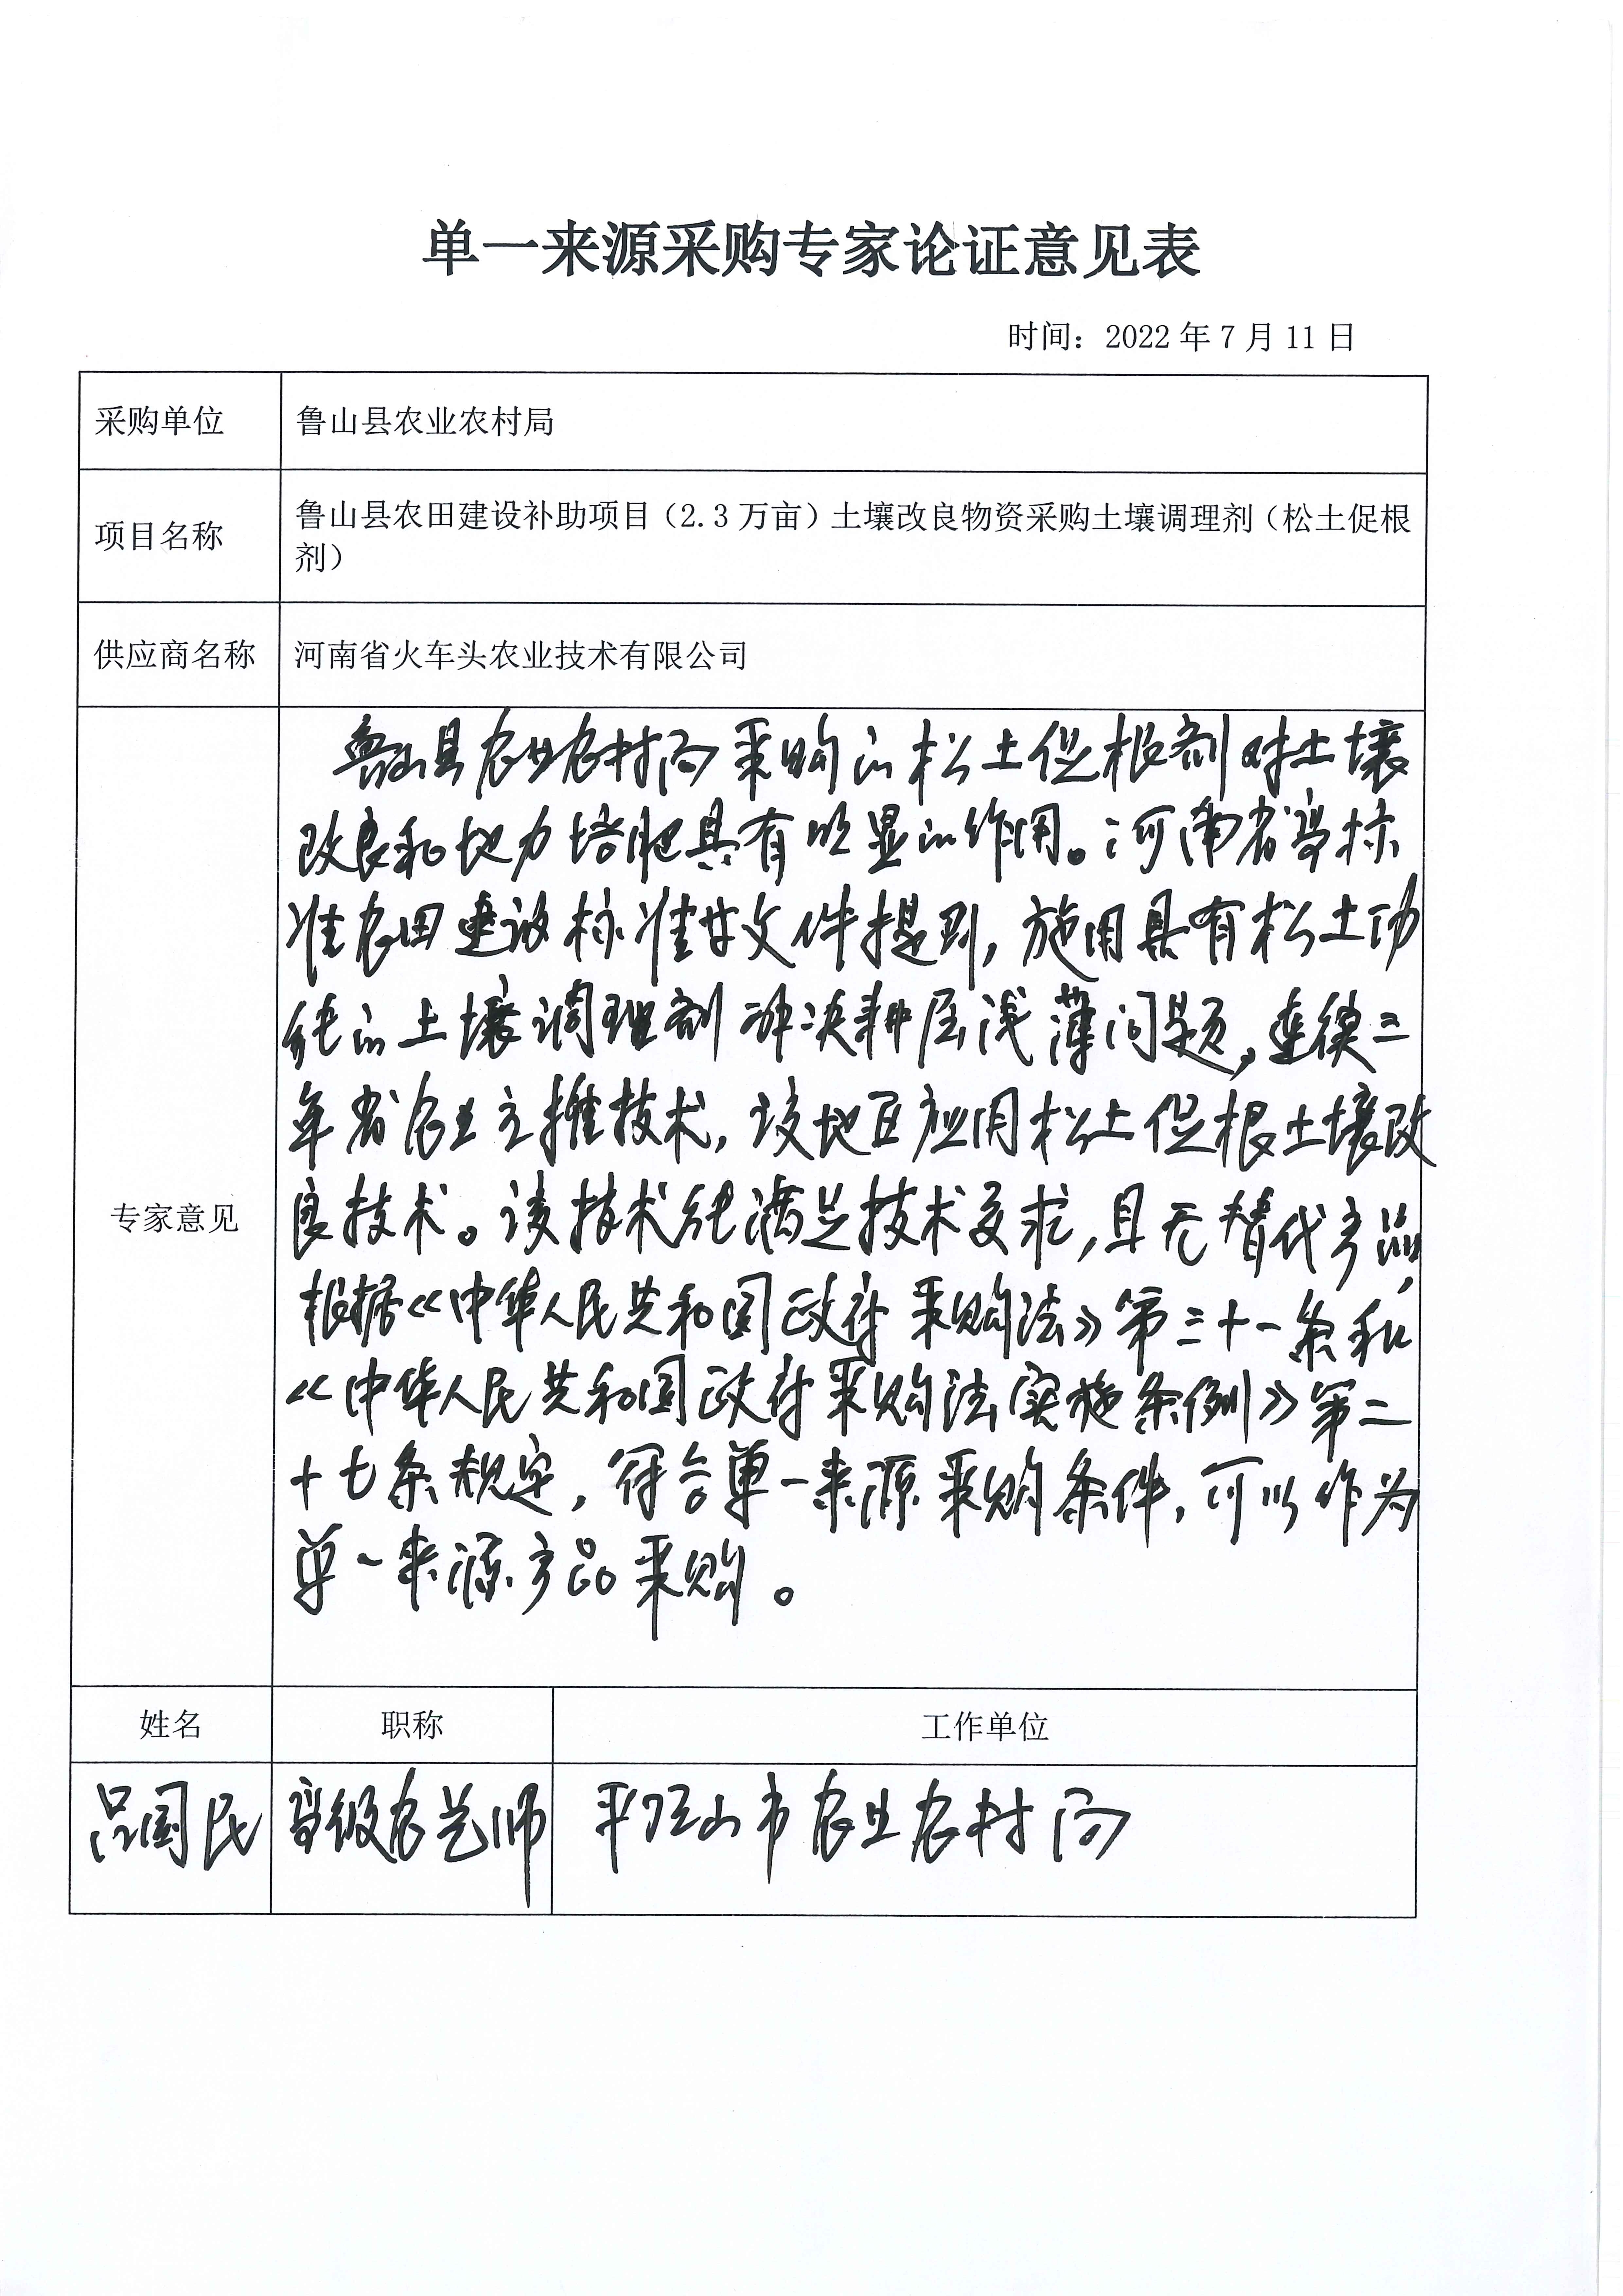 单一来源采购专家论证意见表
时间：2022 年 7 月 11 日
采购单位
鲁山县农业农村局
项目名称
鲁山县农田建设补助项目（2.3 万亩）土壤改良物资采购土壤调理剂（松土促根
剂）
供应商名称
河南省火车头农业技术有限公司
专家意见
鲁山县农业农村局采购的松土促根剂对土壤
改良和地力培肥具有明显的作用。河南省高标
准农田建设标准等文件提到，施用具有松土功
能的土壤调理剂解决耕层浅薄问题，连续三
年省农业主推技术，该地区应用松土促根土壤改
良技术。该技术能满足技术要求，且无替代产品，
根据《中华人民共和国政府采购法》第三十一条和
《中华人民共和国政府采购法实施条例》第二
十七条规定，符合单一来源采购条件，可以作为
单一来源产品采购。
姓名
职称
工作单位
吕国民
高级农艺师
平顶山市农业农村局